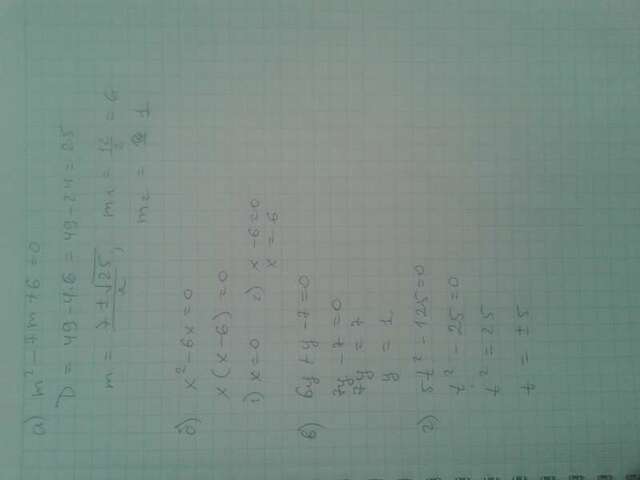 а) m² - 7m + 6 = 0
D = 49 - 4·6 = 49 - 24 = 25
m = (7 ± √25)/2, m₁ = 12/2 = 6
m₂ = 1
б) x² - 6x = 0
x(x - 6) = 0
1) x = 0 2) x - 6 = 0
x = 6
в) 6y + y - 7 = 0
7y - 7 = 0
7y = 7
y = 1
г) 5t² - 125 = 0
t² - 25 = 0
t² = 25
t = ±5